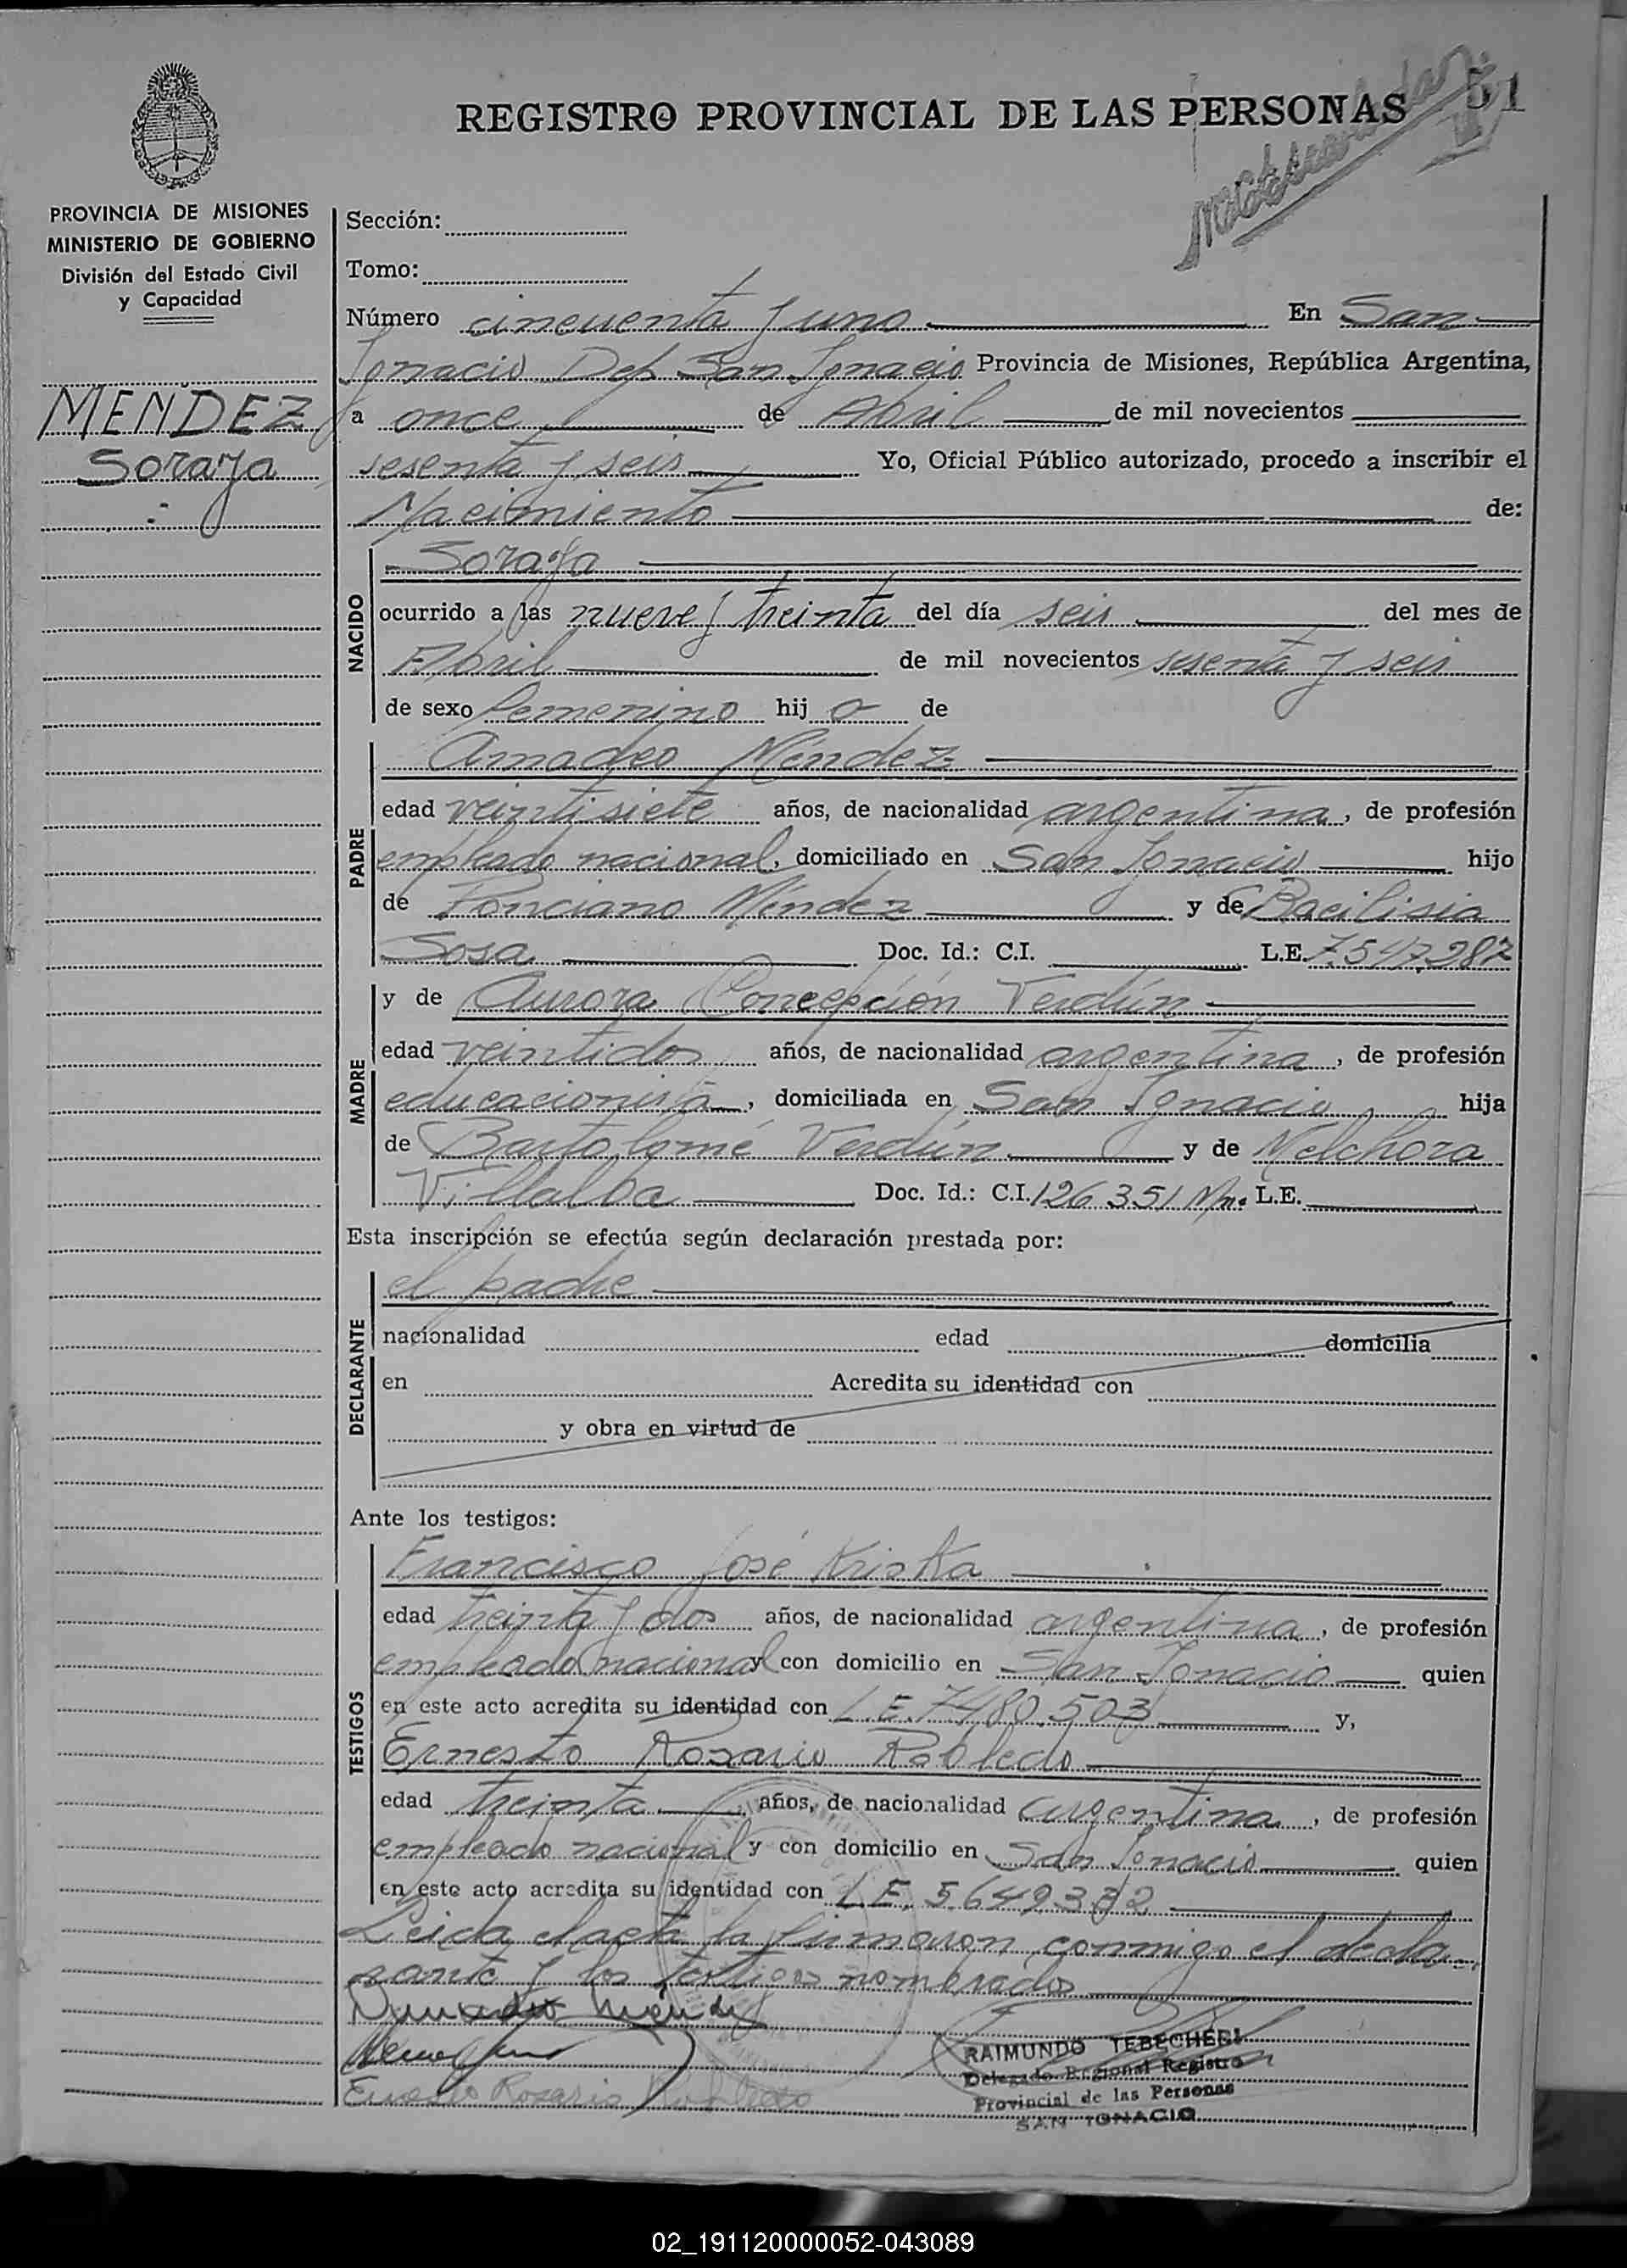 REGISTRO PROVINCIAL DE LAS PERSONAS 51
PROVINCIA DE MISIONES
MINISTERIO DE GOBIERNO
División del Estado Civil
y Capacidad
MENDEZ
Soraya
Sección:
Tomo:
Número cincuenta y uno En San
Ignacio Dep. San Ignacio Provincia de Misiones, República Argentina,
a once de Abril de mil novecientos
sesenta y seis Yo, Oficial Público autorizado, procedo a inscribir el
Nacimiento de:
NACIDO
Soraya
ocurrido a las nueve y treinta del día seis del mes de
Abril de mil novecientos sesenta y seis
de sexo femenino hij a de
PADRE
Amadeo Méndez
edad veintisiete años, de nacionalidad argentina, de profesión
empleado nacional, domiciliado en San Ignacio hijo
de Ponciano Méndez y de Bacilisia
Sosa Doc. Id.: C.I. L.E. 7.547.287
MADRE
y de Aurora Concepción Verdún
edad veintidos años, de nacionalidad argentina, de profesión
educacionista, domiciliada en San Ignacio hija
de Bartolomé Verdún y de Melchora
Villalba Doc. Id.: C.I. 126.351 Mnes. L.E.
Esta inscripción se efectúa según declaración prestada por:
DECLARANTE
el padre
nacionalidad edad domicilia
en Acredita su identidad con
y obra en virtud de
Ante los testigos:
TESTIGOS
Francisco José
edad treinta y dos años, de nacionalidad argentina, de profesión
empleado nacional y con domicilio en San Ignacio quien
en este acto acredita su identidad con L.E. 7480.503 y,
Ernesto Rosario Robledo
edad treinta años, de nacionalidad argentina, de profesión
empleado nacional y con domicilio en San Ignacio quien
en este acto acredita su identidad con L.E. 5.649.332
Leida el acta la firmaron conmigo el decla-
rante y los testigos nombrados
Amadeo Méndez
Ernesto Rosario Robledo
RAIMUNDO TEBECHERI
Delegado Regional Registro
Provincial de las Personas
SAN IGNACIO
02_191120000052-043089